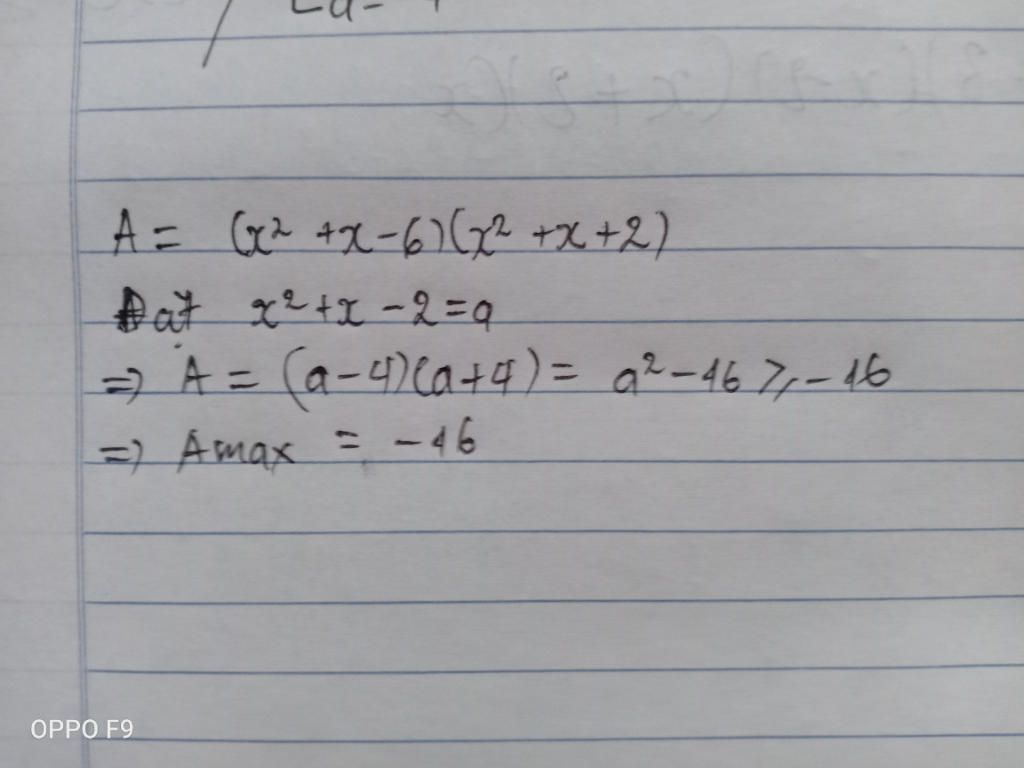 A = (x² + x - 6)(x² + x + 2)
Đặt x² + x - 2 = a
=> A = (a - 4)(a + 4) = a² - 16 ≥ -16
=> Amax = -16
OPPO F9